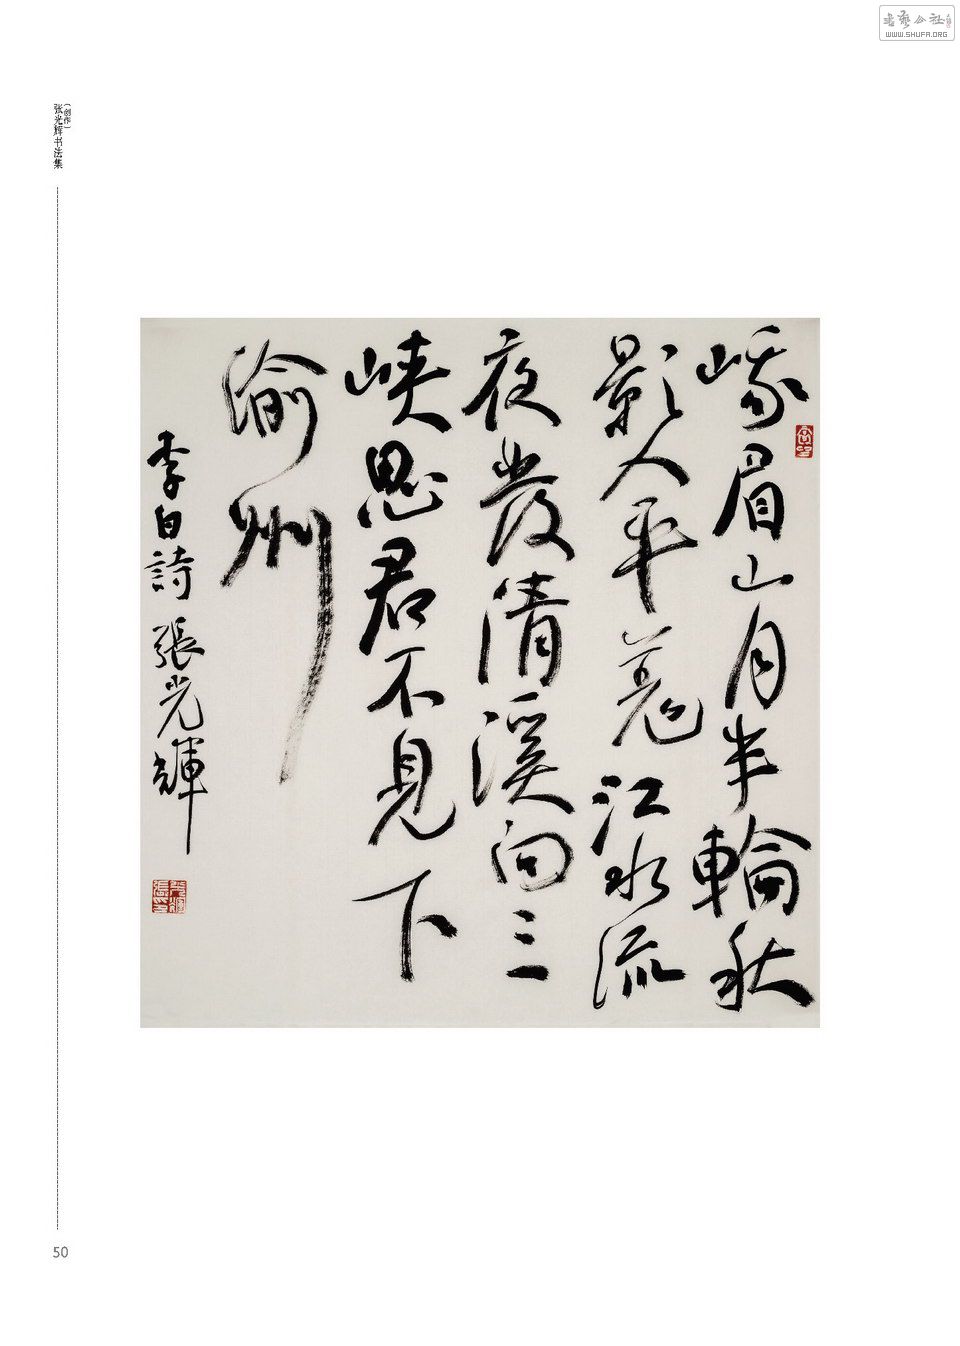 書藝公社
WWW.SHUFA.ORG
（创作）
张光辉书法集
峨眉山月半輪秋
影入平羌江水流
夜發清溪向三
峽思君不見下
渝州
李白詩 張光輝
50